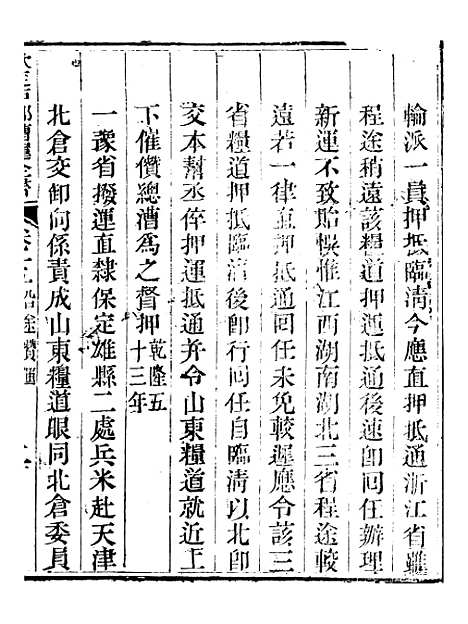 輪派一員押抵臨清今應直押抵通浙江省雖
程途稍遠該糧道押運抵通後速卽回任辦理
新運不致貽悞惟江西湖南湖北三省程途較
遠若一律直押抵通回任未免較遲應令該三
省糧道押抵臨清後卽行回任自臨清以北卽
交本幫丞倅押運抵通并令山東糧道就近上
下催儹總漕爲之督押乾隆五十三年
一豫省撥運直隸保定雄縣二處兵米赴天津
北倉交卸向係責成山東糧道眼同北倉委員
戶部漕運全書 沿途儹運